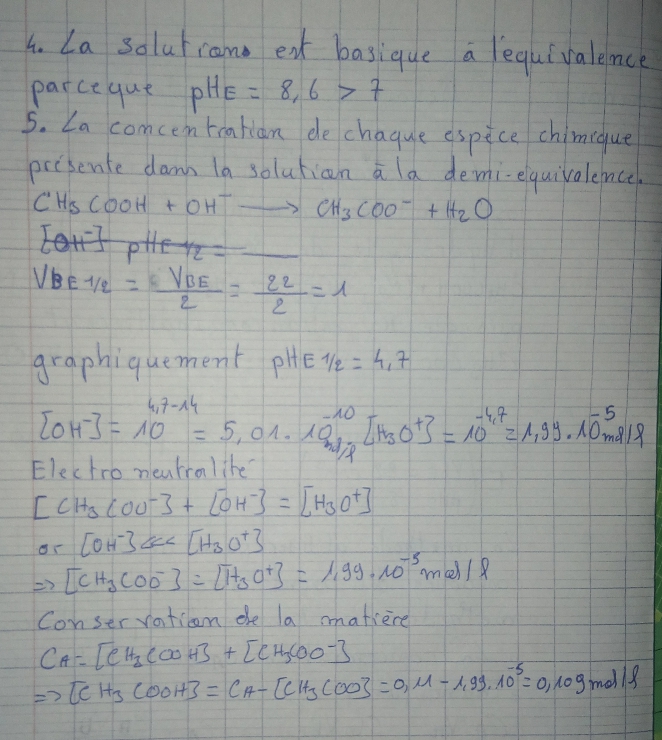 4. La solutions est basique à l'équivalence
parceque pHE = 8,6 > 7
5. La concentration de chaque espèce chimique
présente dans la solution à la demi-equivalence.
CH3COOH + OH⁻ ⟶ CH3COO⁻ + H2O
[OH⁻] pHE 1/2 =
VBE 1/2 = VBE/2 = 22/2 = 1
graphiquement pHE 1/2 = 4,7
[OH⁻] = 10^4,7-14 = 5,01.10^-10 mol/l [H3O⁺] = 10^-4,7 = 1,99.10^-5 mol/l
Electro neutralité
[CH3COO⁻] + [OH⁻] = [H3O⁺]
or [OH⁻] <<< [H3O⁺]
=> [CH3COO⁻] = [H3O⁺] = 1,99.10^-5 mol/l
Conservation de la matière
CA = [CH3COOH] + [CH3COO⁻]
=> [CH3COOH] = CA - [CH3COO] = 0,11 - 1,99.10^-5 = 0,109 mol/l